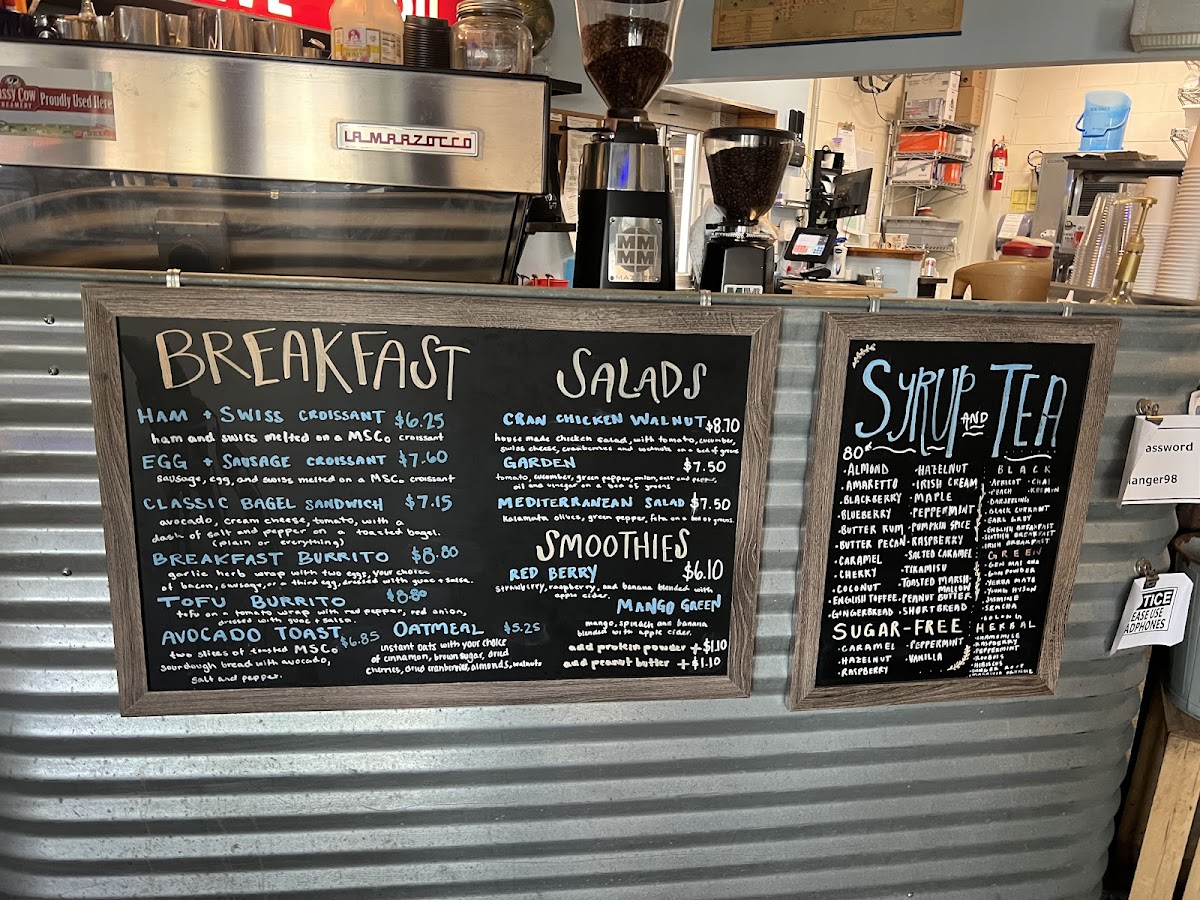 Proudly Used Here
LA MARZOCCO
BREAKFAST
HAM + SWISS CROISSANT $6.25
ham and swiss melted on a MSCo croissant
EGG + SAUSAGE CROISSANT $7.60
sausage, egg, and swiss melted on a MSCo croissant
CLASSIC BAGEL SANDWICH $7.15
avocado, cream cheese, tomato, with a
dash of salt and pepper on a toasted bagel.
(plain or everything)
BREAKFAST BURRITO $8.80
garlic herb wrap with two eggs, your choice
of bacon, sausage, or a third egg, dressed with guac + salsa.
TOFU BURRITO $8.80
tofu on a tomato wrap with red pepper, red onion,
dressed with guac + salsa.
AVOCADO TOAST $6.85
two slices of toasted MSCo
sourdough bread with avocado,
salt and pepper.
OATMEAL $5.25
instant oats with your choice
of cinnamon, brown sugar, dried
cherries, dried cranberries, almonds, walnuts
SALADS
CRAN CHICKEN WALNUT $8.70
house made chicken salad, with tomato, cucumber,
swiss cheese, cranberries and walnuts on a bed of greens
GARDEN $7.50
tomato, cucumber, green pepper, onion, salt and pepper,
oil and vinegar on a bed of greens
MEDITERRANEAN SALAD $7.50
kalamata olives, green pepper, feta on a bed of greens
SMOOTHIES
RED BERRY $6.10
strawberry, raspberry, and banana blended with
apple cider.
MANGO GREEN
mango, spinach and banana
blended with apple cider.
add protein powder +$1.10
add peanut butter +$1.10
SYRUP AND TEA
80¢
·ALMOND
·AMARETTO
·BLACKBERRY
·BLUEBERRY
·BUTTER RUM
·BUTTER PECAN
·CARAMEL
·CHERRY
·COCONUT
·ENGLISH TOFFEE
·GINGERBREAD
·HAZELNUT
·IRISH CREAM
·MAPLE
·PEPPERMINT
·PUMPKIN SPICE
·RASPBERRY
·SALTED CARAMEL
·TIRAMISU
·TOASTED MARSH
MALLOW
·PEANUT BUTTER
·SHORTBREAD
SUGAR-FREE
·CARAMEL
·HAZELNUT
·RASPBERRY
·PEPPERMINT
·VANILLA
BLACK
·APRICOT ·CHAI
·PEACH
·DARJEELING
·BLACK CURRANT
·EARL GREY
·ENGLISH BREAKFAST
·SCOTTISH BREAKFAST
·IRISH BREAKFAST
GREEN
·GEN MAI CHA
·GUN POWDER
·YERBA MATE
·YOUNG HYSON
·JASMINE
·SENCHA
HERBAL
·CHAMOMILE
·RASPBERRY
·PEPPERMINT
·ROOIBOS
·HIBISCUS
assword
langer98
TICE
EASE USE
ADPHONES